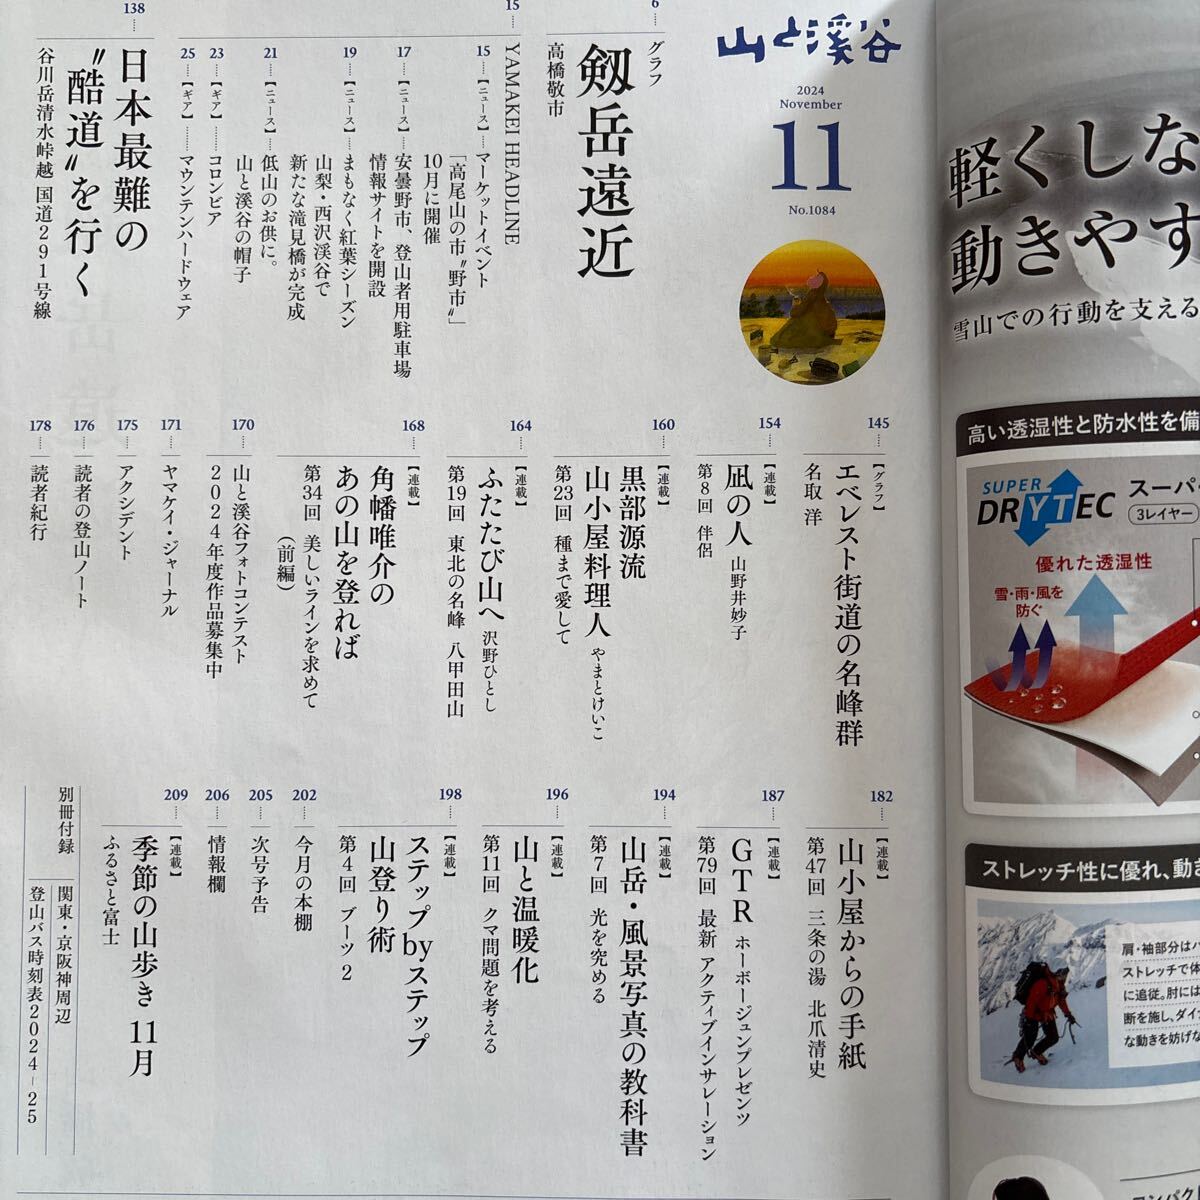 山と溪谷
2024
November
11
No.1084
6
グラフ
剱岳遠近
高橋敬市
15
YAMAKEI HEADLINE
15
【ニュース】
マーケットイベント
「高尾山の市〝野市〟」
10月に開催
17
【ニュース】
安曇野市、登山者用駐車場
情報サイトを開設
19
【ニュース】
まもなく紅葉シーズン
山梨・西沢渓谷で
新たな滝見橋が完成
21
【ニュース】
低山のお供に。
山と溪谷の帽子
23
【ギア】
コロンビア
25
【ギア】
マウンテンハードウェア
138
日本最難の
〝酷道〟を行く
谷川岳清水峠越 国道291号線
145
【グラフ】
エベレスト街道の名峰群
名取 洋
154
【連載】
凪の人 山野井妙子
第8回 伴侶
160
【連載】
黒部源流
山小屋料理人 やまとけいこ
第23回 種まで愛して
164
【連載】
ふたたび山へ 沢野ひとし
第19回 東北の名峰 八甲田山
168
【連載】
角幡唯介の
あの山を登れば
第34回 美しいラインを求めて
（前編）
170
山と溪谷フォトコンテスト
2024年度作品募集中
171
ヤマケイ・ジャーナル
175
アクシデント
176
読者の登山ノート
178
読者紀行
182
【連載】
山小屋からの手紙
第47回 三条の湯 北爪清史
187
【連載】
GTR ホーボージュンプレゼンツ
第79回 最新 アクティブインサレーション
194
【連載】
山岳・風景写真の教科書
第7回 光を究める
196
【連載】
山と温暖化
第11回 クマ問題を考える
198
【連載】
ステップbyステップ
山登り術
第4回 ブーツ2
202
今月の本棚
205
次号予告
206
情報欄
209
【連載】
季節の山歩き 11月
ふるさと富士
別冊付録
関東・京阪神周辺
登山バス時刻表2024-25
軽くしな
動きやす
雪山での行動を支える
高い透湿性と防水性を備
SUPER
DRYTEC
スーパー
3レイヤー
優れた透湿性
雪・雨・風を
防ぐ
ストレッチ性に優れ、動き
肩・袖部分はハ
ストレッチで体
に追従。肘には
断を施し、ダイナ
な動きを妨げな
コンパク